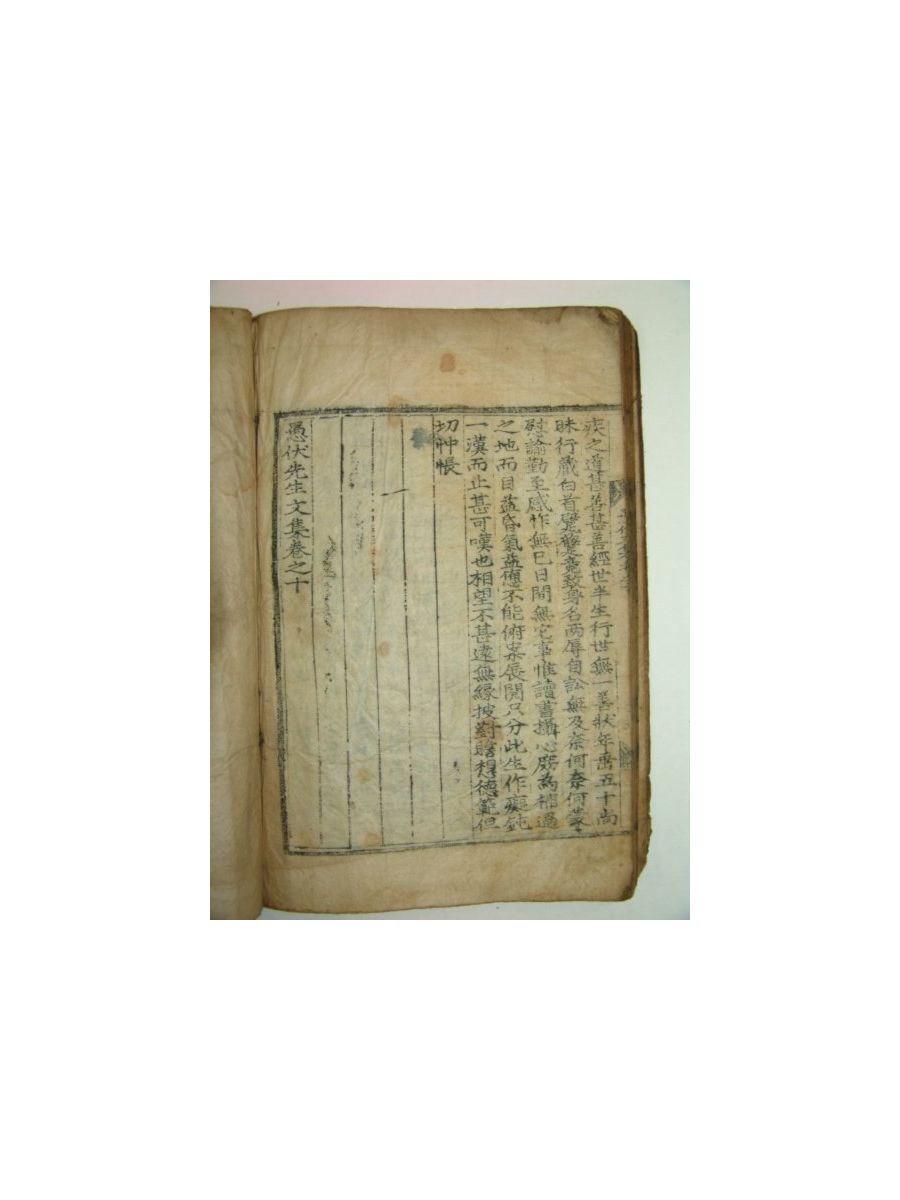 疾之道甚荅甚善經世半生行世無一善狀年垂五十尚
昧行藏白首蹩躠竟致身名兩辱自訟無及柰何柰何蒙
慰諭勤至感怍無已日間無它事惟讀書攝心庶爲補過
之地而目益昏氣益憊不能俯案展閱只分此生作癡鈍
一漢而止甚可嘆也相望不甚遠無緣披對瞻想德範但
切忡悵
愚伏先生文集卷之十